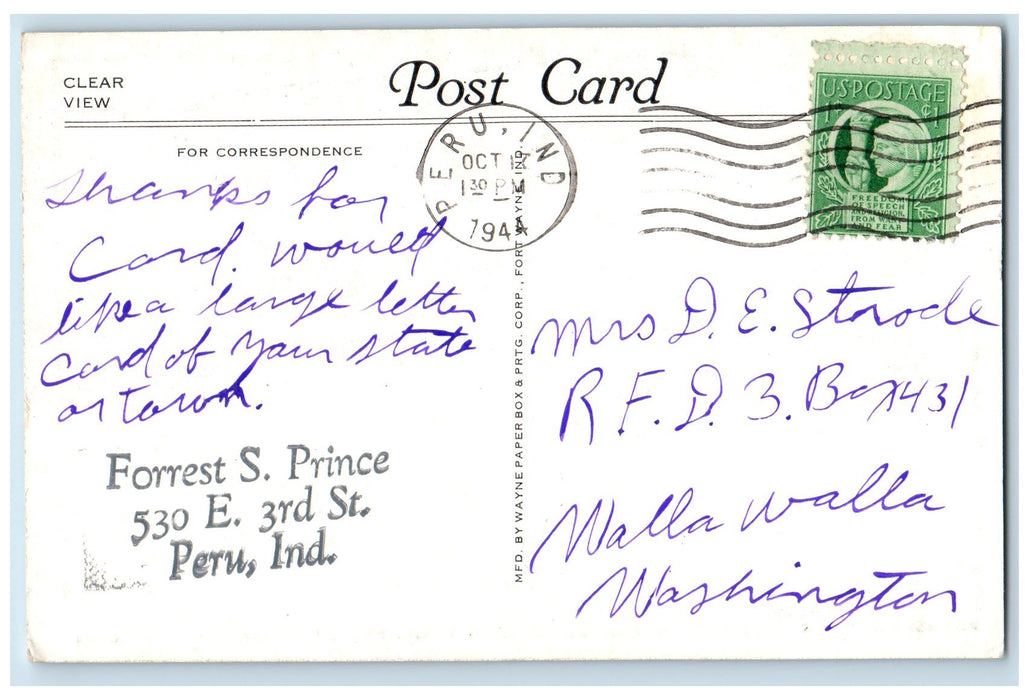 CLEAR
VIEW
Post Card
FOR CORRESPONDENCE
Thanks for
Card. would
like a large letter
Card of your state
or town.
Forrest S. Prince
530 E. 3rd St.
Peru, Ind.
MFD. BY WAYNE PAPER BOX & PRTG. CORP., FORT WAYNE, IND.
PERU, IND
OCT
1 30 PM
1944
U.S. POSTAGE
1¢ 1
FREEDOM
OF SPEECH
AND RELIGION,
FROM WANT
AND FEAR
Mrs D. E. Strode
R. F. D. 3. Box 431
Walla Walla
Washington